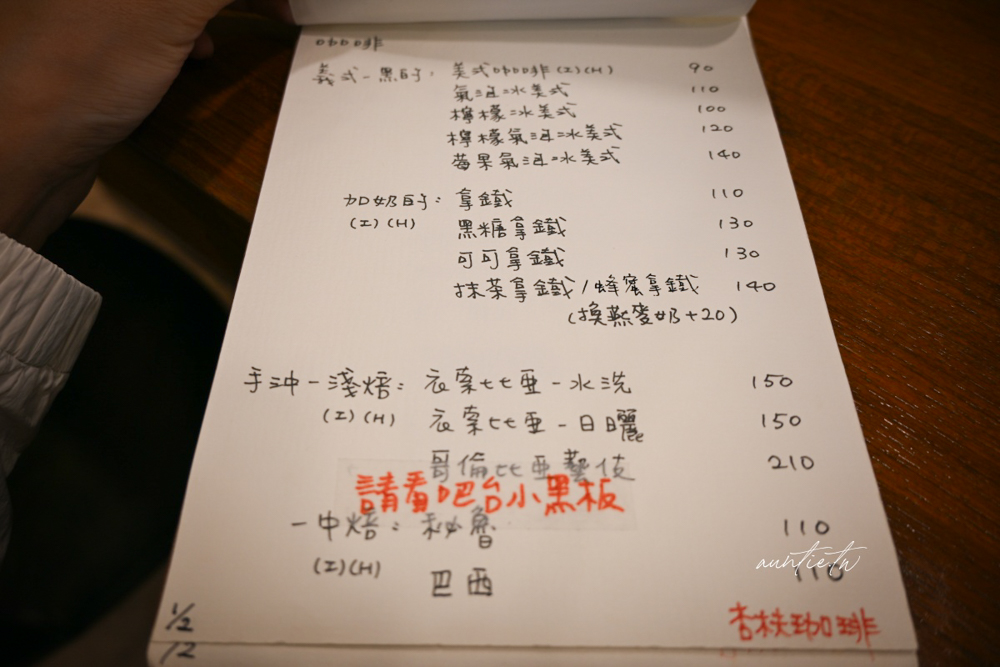 咖啡
義式-黑的: 美式咖啡(I)(H) 90
氣泡冰美式 110
檸檬冰美式 100
檸檬氣泡冰美式 120
莓果氣泡冰美式 140
加奶的: 拿鐵 110
(I)(H) 黑糖拿鐵 130
可可拿鐵 130
抹茶拿鐵/蜂蜜拿鐵 140
(換燕麥奶+20)
手沖-淺焙: 衣索比亞-水洗 150
(I)(H) 衣索比亞-日曬 150
哥倫比亞藝伎 210
請看吧台小黑板
-中焙: 秘魯 110
(I)(H) 巴西 110
auntietw
1/2
杏枝珈琲
12